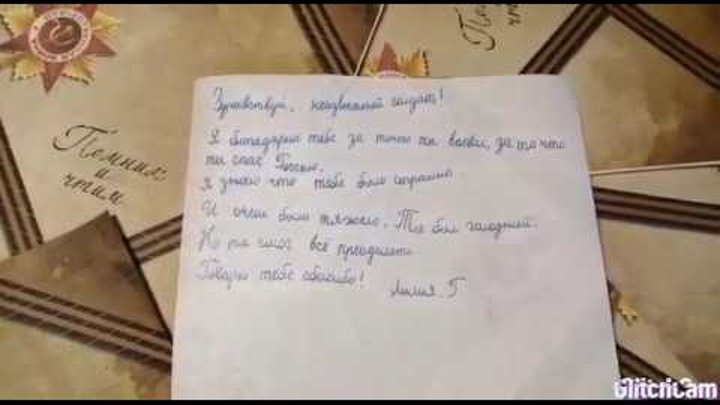 Помним
и
чтим
Здравствуй, неизвестный солдат!
Я благодарю тебе за то что ты воевал, за то что
ты спас Россию.
Я знаю что тебе было страшно.
И очень было тяжело. Ты был голодный.
Но ты смог всё преодолеть.
Говорю тебе спасибо!
Лилия Г
GlitchCam